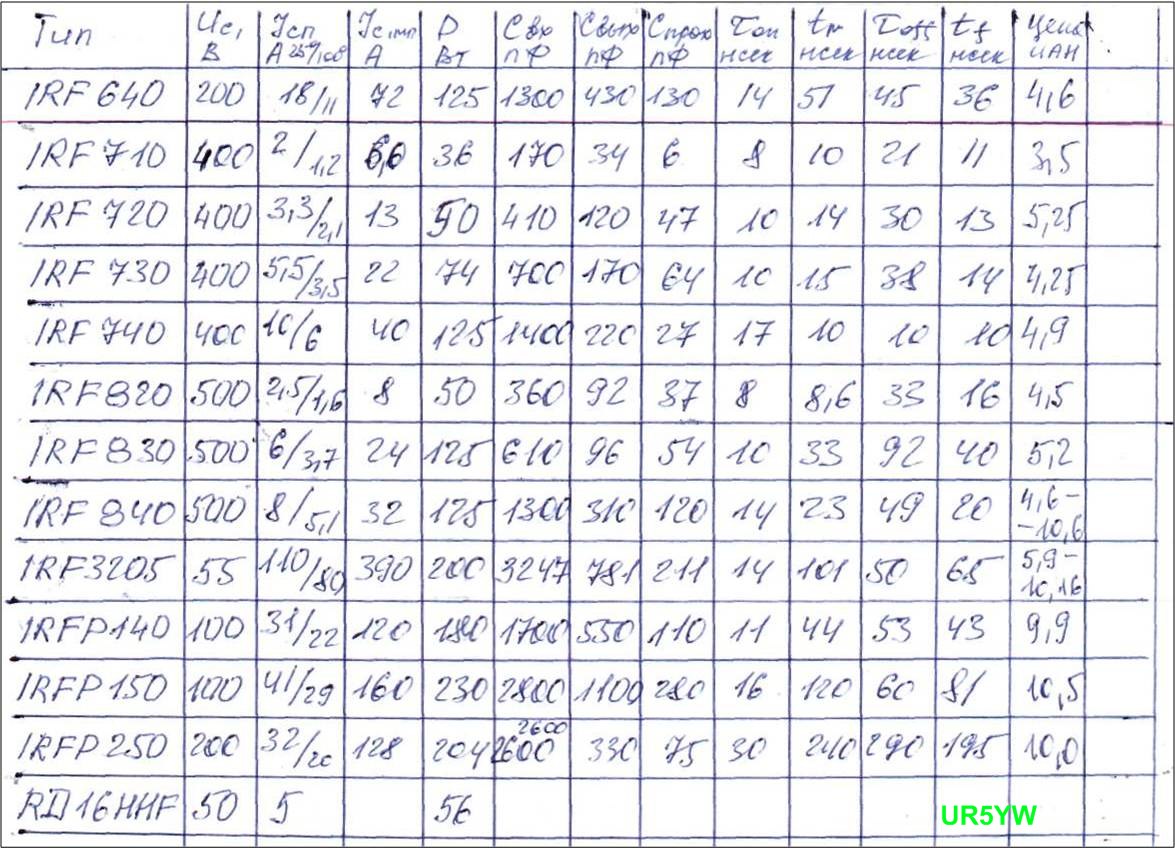 Тип Uс, В Iсп А 25°/100° Iс,имп А P Вт Cвх пФ Cвых пФ Cпрох пФ Ton нсек tr нсек Toff нсек tf нсек Цена UAH
IRF 640 200 18/11 72 125 1300 430 130 14 51 45 36 4,6
IRF 710 400 2/1,2 6,6 36 170 34 6 8 10 21 11 3,5
IRF 720 400 3,3/2,1 13 50 410 120 47 10 14 30 13 5,25
IRF 730 400 5,5/3,5 22 74 700 170 64 10 15 38 14 4,25
IRF 740 400 10/6 40 125 1400 220 27 17 10 10 10 4,9
IRF820 500 2,5/1,6 8 50 360 92 37 8 8,6 33 16 4,5
IRF 830 500 6/3,7 24 125 610 96 54 10 33 92 40 5,2
IRF 840 500 8/5,1 32 125 1300 310 120 14 23 49 20 4,6-
-10,6
IRF3205 55 110/80 390 200 3247 781 211 14 101 50 65 5,9-
10,16
IRFP140 100 31/22 120 180 1700 550 110 11 44 53 43 9,9
IRFP 150 100 41/29 160 230 2800 1100 280 16 120 60 81 10,5
2600
IRFP 250 200 32/20 128 204 2600 330 75 30 240 290 195 10,0
RD16HHF 50 5 56
UR5YW